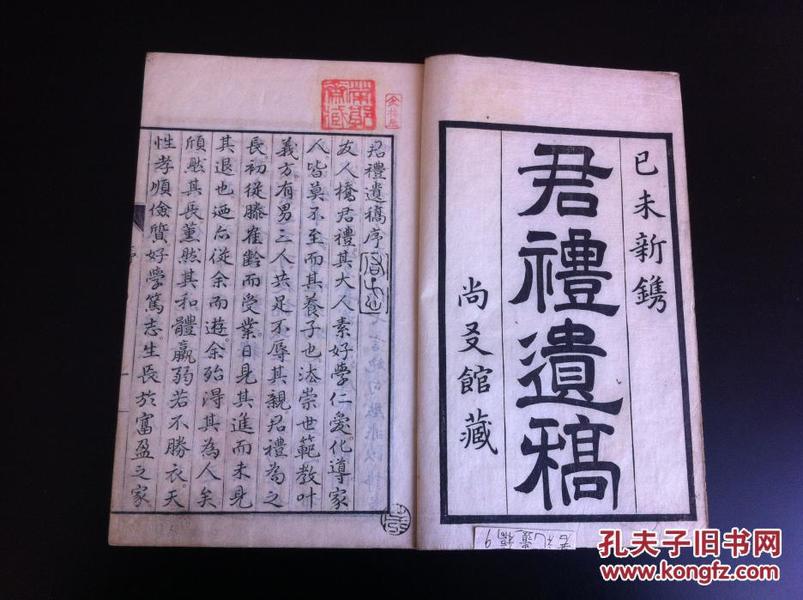 己未新鐫
君禮遺稿
尚友館藏
君禮遺稿序
友人橋君禮其大人素好學仁愛化導家
人皆莫不至而其養子也法崇世範教叶
義方有男三人共足不辱其親君禮為之
長初從滕隺齡而受業日見其進而未見
其退也迺后從余而遊余殆得其為人矣
頎然其長薰然其和體羸弱若不勝衣天
性孝順儉質好學篤志生長於富盈之家
孔夫子旧书网
www.kongfz.com